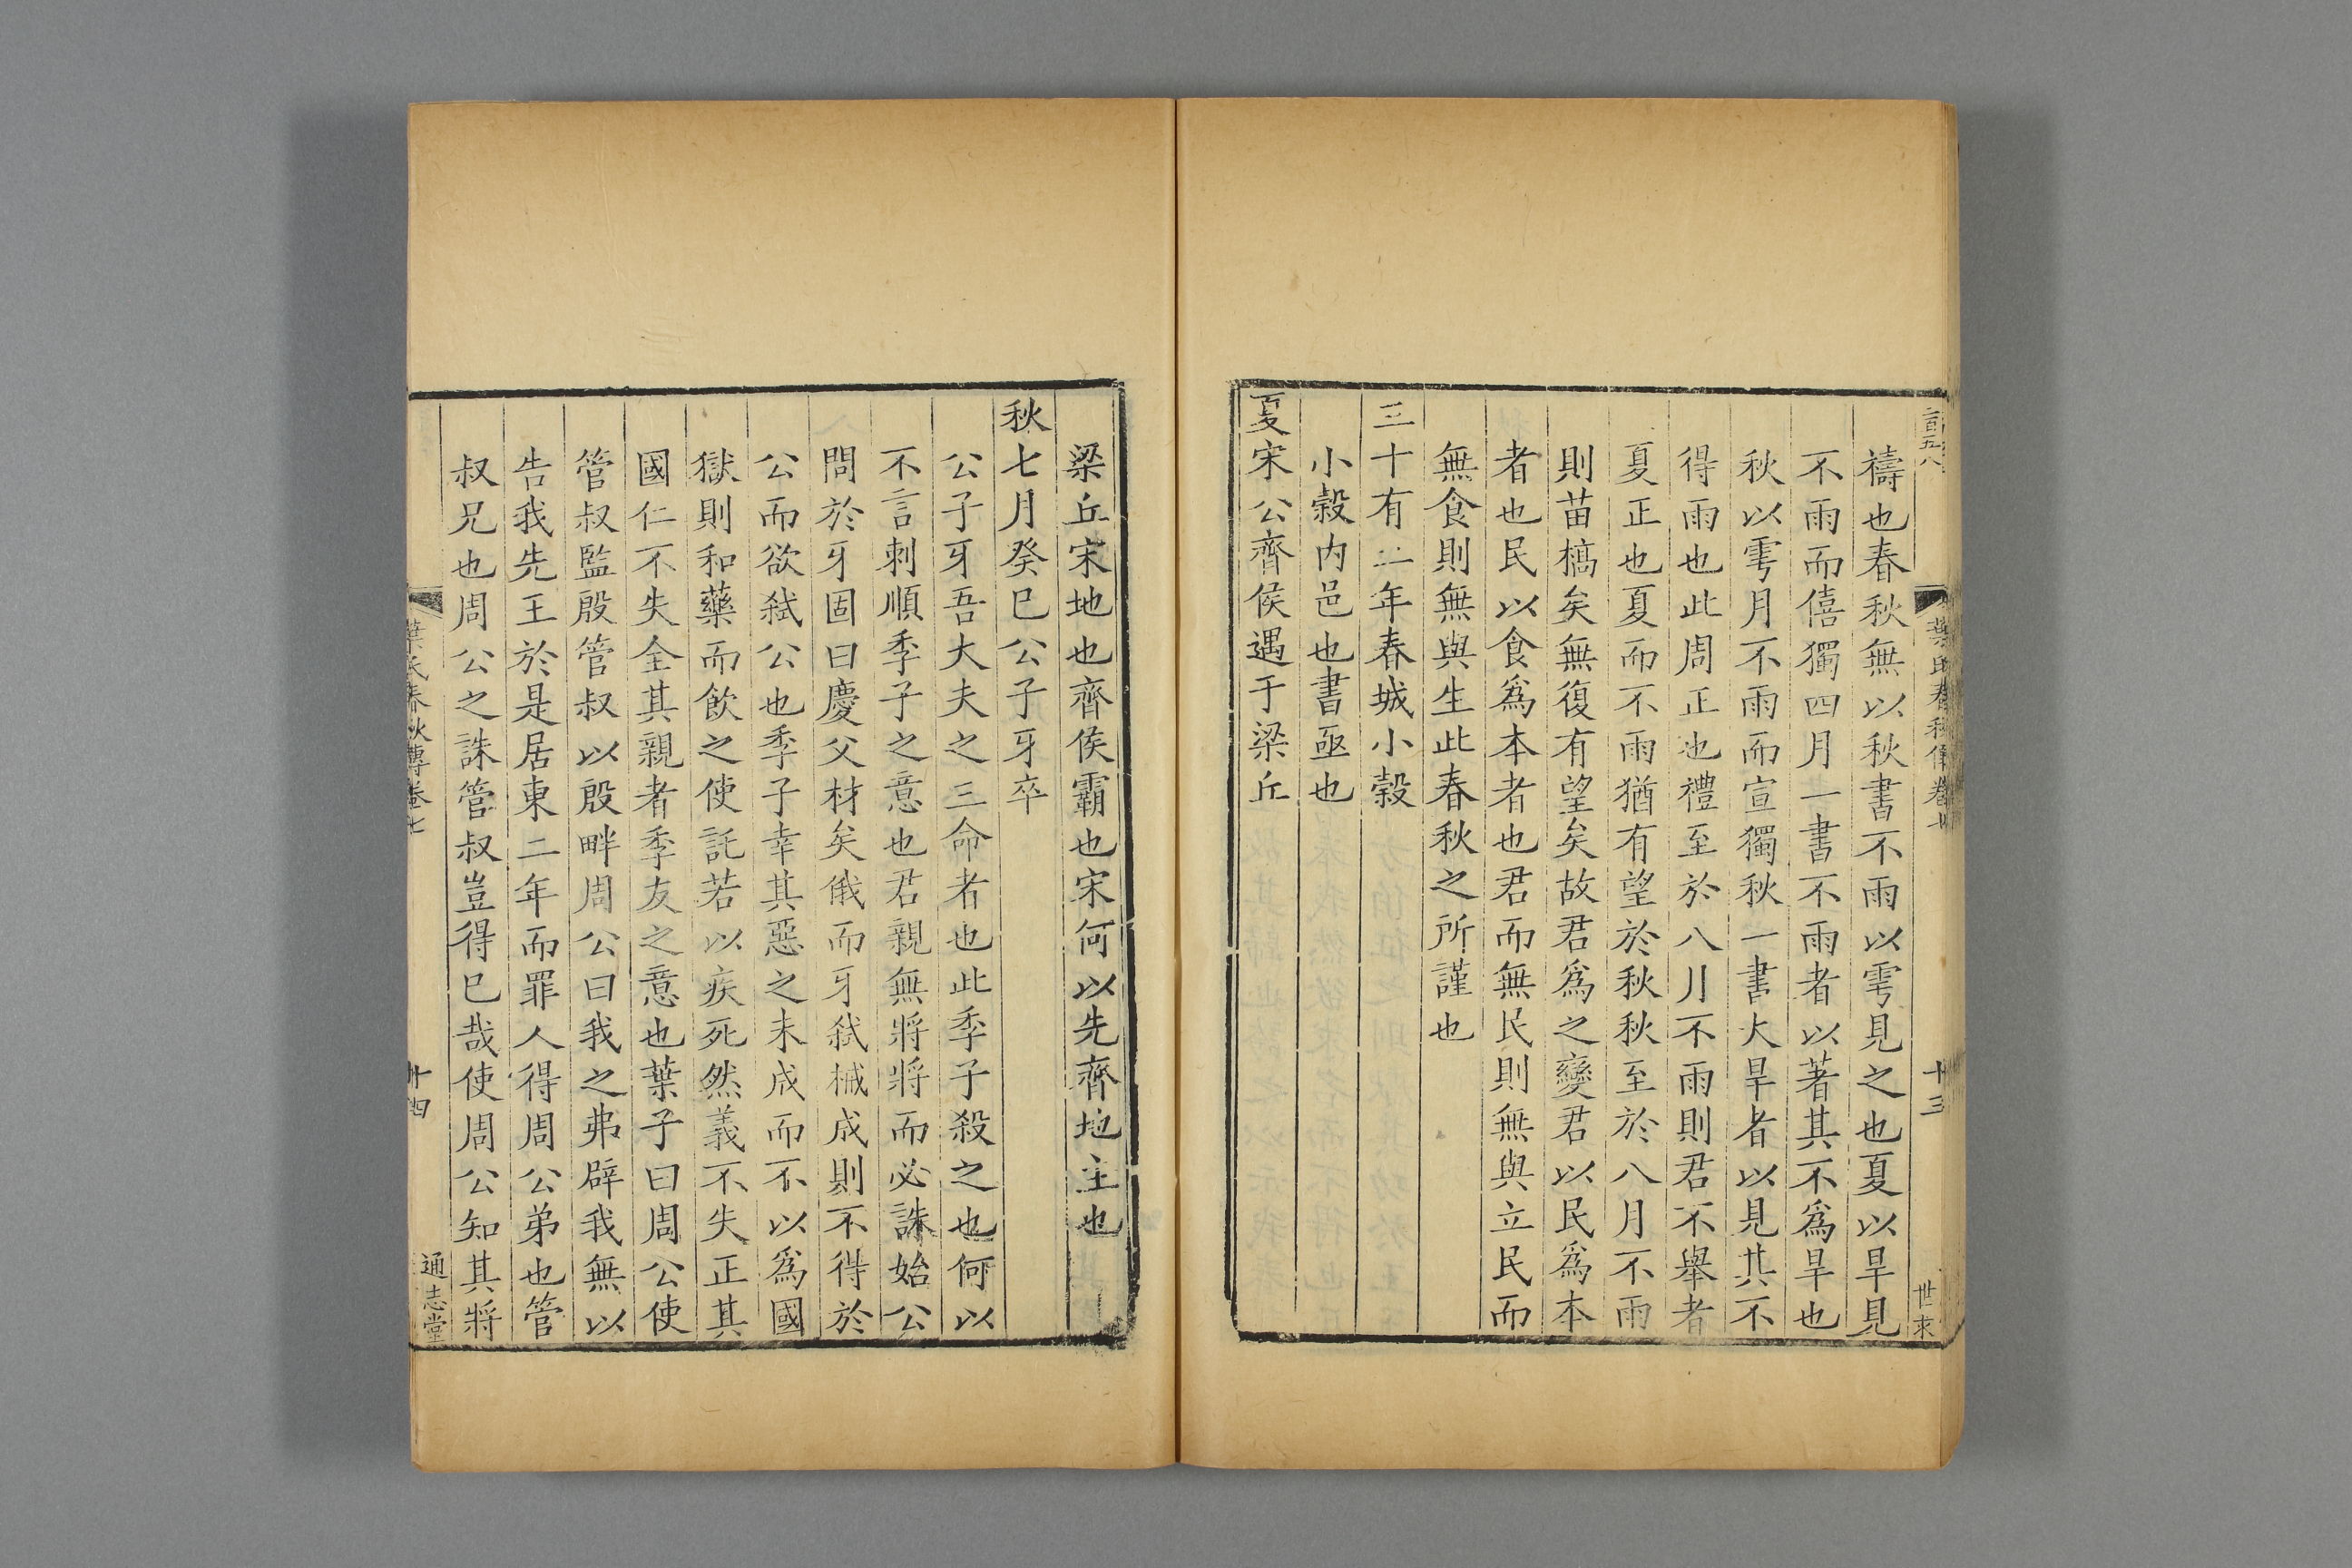 禱也春秋無以秋書不雨以雩見之也夏以旱見
不雨而僖獨四月一書不雨者以著其不爲旱也
秋以雩月不雨而宣獨秋一書大旱者以見其不
得雨也此周正也禮至於八月不雨則君不舉者
夏正也夏而不雨猶有望於秋秋至於八月不雨
則苗槁矣無復有望矣故君爲之變君以民爲本
者也民以食爲本者也君而無民則無與立民而
無食則無與生此春秋之所謹也
三十有二年春城小穀
小穀内邑也書亟也
夏宋公齊侯遇于梁丘
梁丘宋地也齊侯霸也宋何以先齊地主也
秋七月癸巳公子牙卒
公子牙吾大夫之三命者也此季子殺之也何以
不言刺順季子之意也君親無將將而必誅始公
問於牙固曰慶父材矣俄而牙弑械成則不得於
公而欲弑公也季子幸其惡之未成而不以爲國
獄則和藥而飲之使託若以疾死然義不失正其
國仁不失全其親者季友之意也葉子曰周公使
管叔監殷管叔以殷畔周公曰我之弗辟我無以
告我先王於是居東二年而罪人得周公弟也管
叔兄也周公之誅管叔豈得已哉使周公知其將
葉氏春秋傳卷七
十三
葉氏春秋傳卷七
十四
通志堂